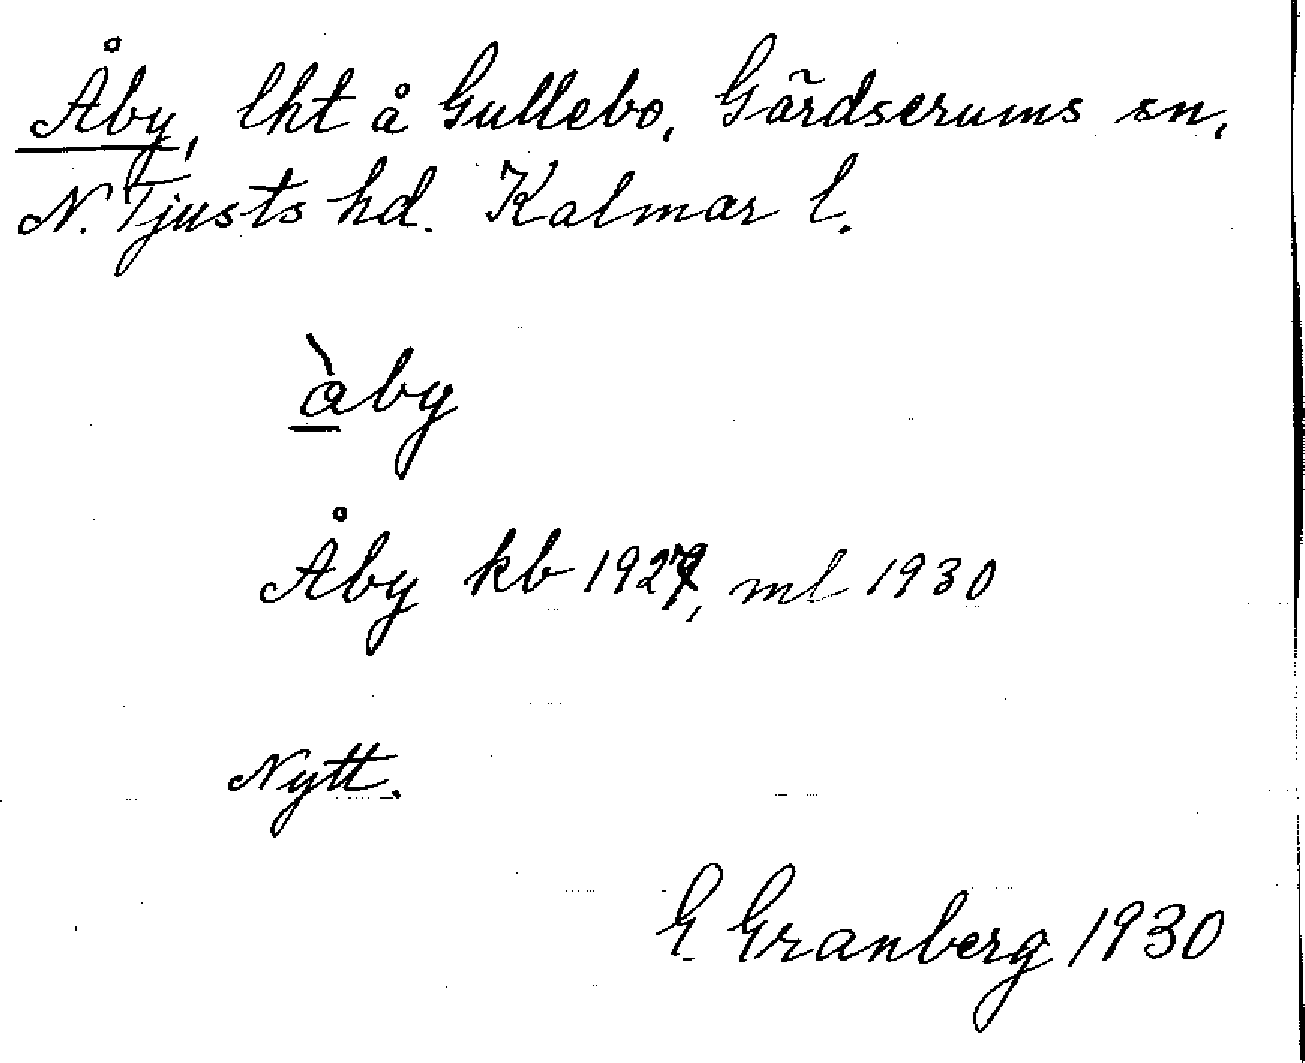 Åby, lht å Gullebo, Gärdserums sn,
N. Tjusts hd. Kalmar l.
àby
Åby kb 1927, ml 1930
Nytt.
G Granberg 1930